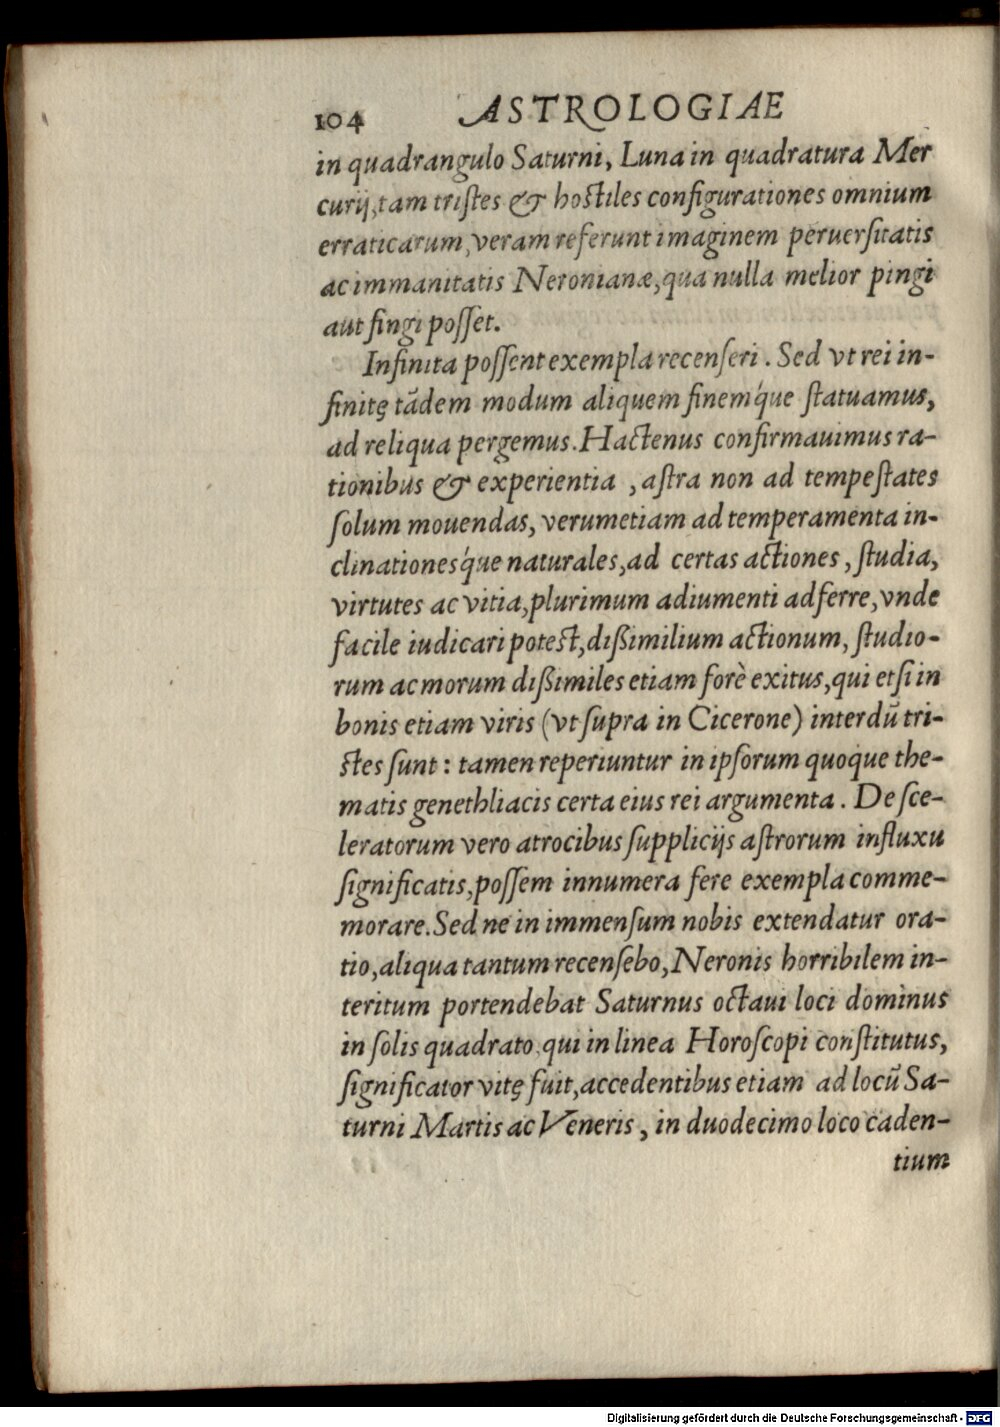 104 ASTROLOGIAE
in quadrangulo Saturni, Luna in quadratura Mer
curij, tam triſtes & hoſtiles configurationes omnium
erraticarum, veram referunt imaginem peruerſitatis
ac immanitatis Neronianæ, qua nulla melior pingi
aut fingi poſſet.
Infinita poſſent exempla recenſeri. Sed vt rei in-
finitę tādem modum aliquem finemq́ue ſtatuamus,
ad reliqua pergemus. Hactenus confirmauimus ra-
tionibus & experientia, aſtra non ad tempeſtates
ſolum mouendas, verumetiam ad temperamenta in-
clinationesq́ue naturales, ad certas actiones, ſtudia,
virtutes ac vitia, plurimum adiumenti adferre, vnde
facile iudicari poteſt, dißimilium actionum, ſtudio-
rum ac morum dißimiles etiam forè exitus, qui etſi in
bonis etiam viris (vt ſupra in Cicerone) interdū tri-
ſtes ſunt: tamen reperiuntur in ipſorum quoque the-
matis genethliacis certa eius rei argumenta. De ſce-
leratorum vero atrocibus ſupplicijs aſtrorum influxu
ſignificatis, poſſem innumera fere exempla comme-
morare. Sed ne in immenſum nobis extendatur ora-
tio, aliqua tantum recenſebo, Neronis horribilem in-
teritum portendebat Saturnus octaui loci dominus
in ſolis quadrato, qui in linea Horoſcopi conſtitutus,
ſignificator vitę fuit, accedentibus etiam ad locū Sa-
turni Martis ac Veneris, in duodecimo loco caden-
tium
Digitalisierung gefördert durch die Deutsche Forschungsgemeinschaft - DFG